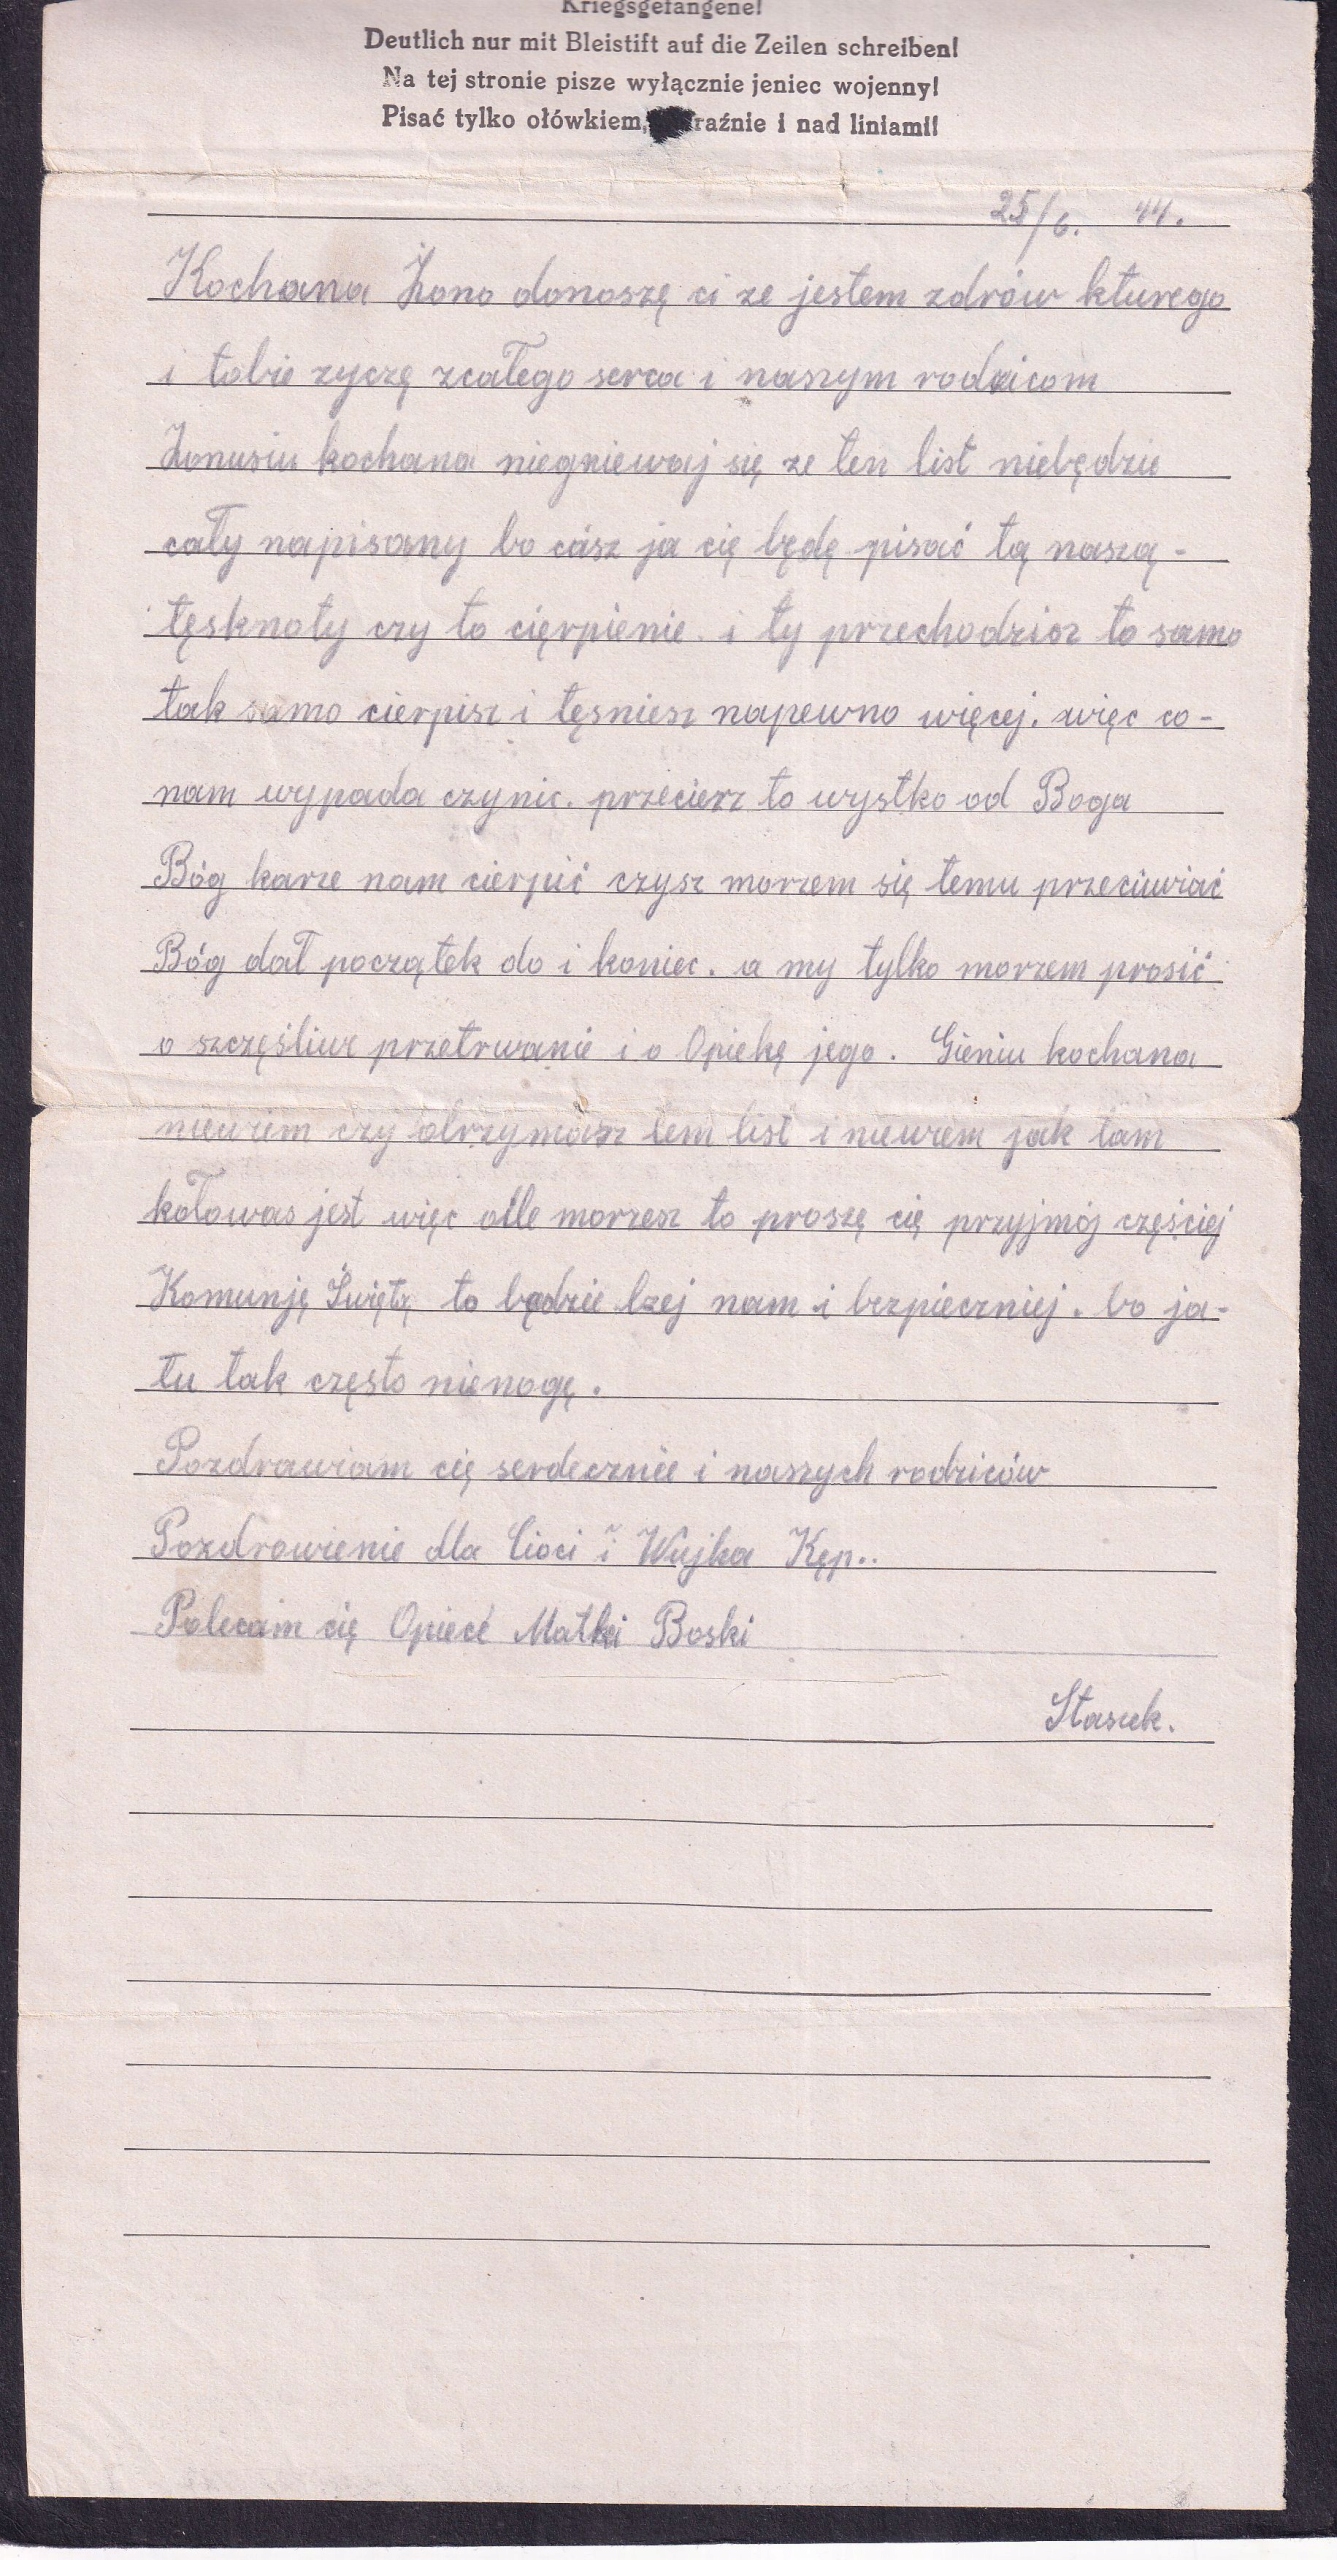 Kriegsgefangene!
Deutlich nur mit Bleistift auf die Zeilen schreiben!
Na tej stronie pisze wyłącznie jeniec wojenny!
Pisać tylko ołówkiem, raźnie i nad liniami!
25/6. 44.
Kochana Żono donoszę ci ze jestem zdrów kturego
i tobie zyczę zcałego serca i naszym rodzicom
Żonusiu kochana niegniewaj się ze ten list niebędzie
cały napisany bo cász ja cię będę pisać tą naszą-
tęsknoty czy to cięrpienie. i ty przechodzisz to samo
tak samo cierpisz i tęsniesz napewno więcej. więc co-
nam wypada czynic. przecierz to wystko od Boga
Bóg karze nam cierpić czysz morzem się temu przeciwiać
Bóg dał początek do i koniec. a my tylko morzem prosić
o szczęśliwe przetrwanie i o Opiekę jego. Gieniu kochana
niewiem czy otrzymasz tem list i niewiem jak tam
kołowas jest więc oile morzesz to proszę cię przyjmój częściej
Komunję Świętą to będzie lzej nam i bezpieczniej. bo ja-
tu tak często niemogę.
Pozdrawiam cię serdecznie i naszych rodziców
Pozdrowienie dla Cioci i Wujka Kęp..
Polecam cię Opiece Matki Boski
Staszek.